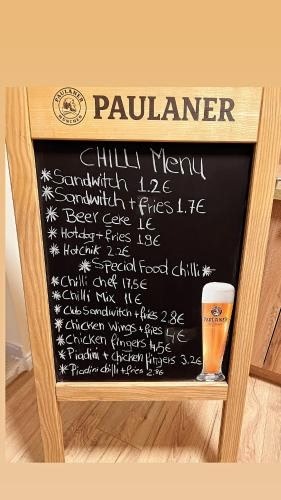 PAULANER
MÜNCHEN
PAULANER
CHILLI Menu
*Sandwitch 1.2€
*Sandwitch + fries 1.7€
*Beer ceke 1€
*Hotdog + fries 1.9€
*Hotchik 2.2€
*Special Food chilli*
*Chilli chef 17.5€
*Chilli Mix 11€
*Club Sandwitch + fries 2.8€
*Chicken wings + fries 4€
*Chicken fingers 4.5€
*Piadini + chicken fingers 3.2€
*Piadini chilli + fries 2.8€
PAULANER